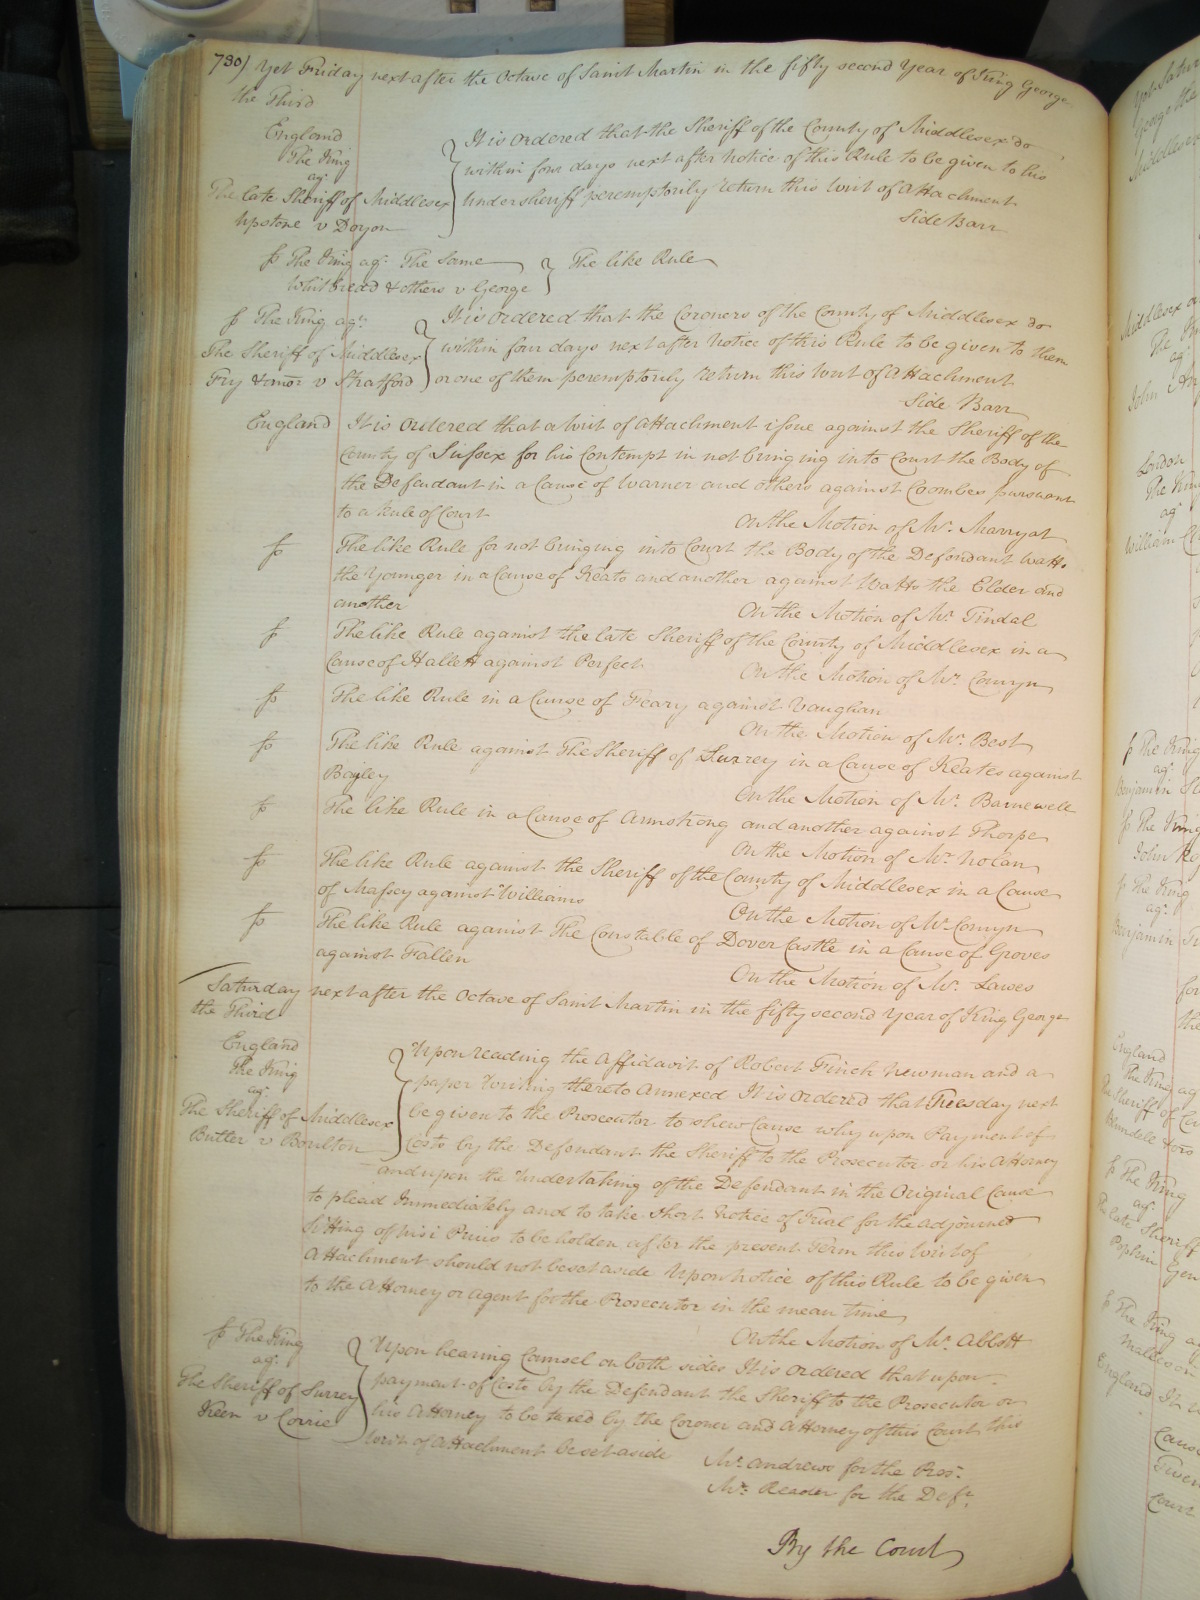 730/ Yet Friday next after the Octave of Saint Martin in the fifty second Year of King George
the Third
England
The King
agt.
The late Sheriff of Middlesex
Upstone v Doyon
It is ordered that the Sheriff of the County of Middlesex do
within four days next after Notice of this Rule to be given to his
Undersheriff peremptorily return this Writ of Attachment
Side Barr
fo The King agt. The Same
Whitbread & others v George
The like Rule
fo The King agt.
The Sheriff of Middlesex
Fry & anor v Stratford
It is ordered that the Coroners of the County of Middlesex do
within four days next after Notice of this Rule to be given to them
or one of them peremptorily return this Writ of Attachment
Side Barr
England It is ordered that a Writ of Attachment issue against the Sheriff of the
County of Sussex for his Contempt in not bringing into Court the Body of
the Defendant in a Cause of Warner and others against Coombes pursuant
to a Rule of Court
On the Motion of Mr. Marryat
fo The like Rule for not bringing into Court the Body of the Defendant Watts
the Younger in a Cause of Keats and another against Watts the Elder and
another
On the Motion of Mr. Tindal
fo The like Rule against the late Sheriff of the County of Middlesex in a
Cause of Hallett against Perfect
On the Motion of Mr. Comyn
fo The like Rule in a Cause of Feary against Vaughan
On the Motion of Mr. Best
fo The like Rule against The Sheriff of Surrey in a Cause of Keates against
Bayley
On the Motion of Mr. Barnewell
fo The like Rule in a Cause of Armstrong and another against Thorpe
On the Motion of Mr. Nolan
fo The like Rule against the Sheriff of the County of Middlesex in a Cause
of Massey against Williams
On the Motion of Mr. Comyn
fo The like Rule against The Constable of Dover Castle in a Cause of Groves
against Fallen
On the Motion of Mr. Lawes
Saturday next after the Octave of Saint Martin in the fifty second Year of King George
the Third
England
The King
agt.
The Sheriff of Middlesex
Butler v Boulton
Upon reading the Affidavit of Robert Finch Newman and a
paper Writing thereto Annexed It is ordered that Tuesday next
be given to the Prosecutor to shew Cause why upon Payment of
Costs by the Defendant the Sheriff to the Prosecutor or his Attorney
and upon the Undertaking of the Defendant in the Original Cause
to plead Immediately and to take short Notice of Trial for the adjourned
Sitting of Nisi Prius to be holden after the present Term this Writ of
Attachment should not be set aside Upon Notice of this Rule to be given
to the Attorney or Agent for the Prosecutor in the mean time
On the Motion of Mr. Abbott
fo The King
agt.
The Sheriff of Surrey
Keen v Corrie
Upon hearing Counsel on both sides It is ordered that upon
payment of Costs by the Defendant the Sheriff to the Prosecutor or
his Attorney to be taxed by the Coroner and Attorney of this Court this
Writ of Attachment be set aside
Mr. Andrews for the Pros.
Mr. Reader for the Deft.
By the Court